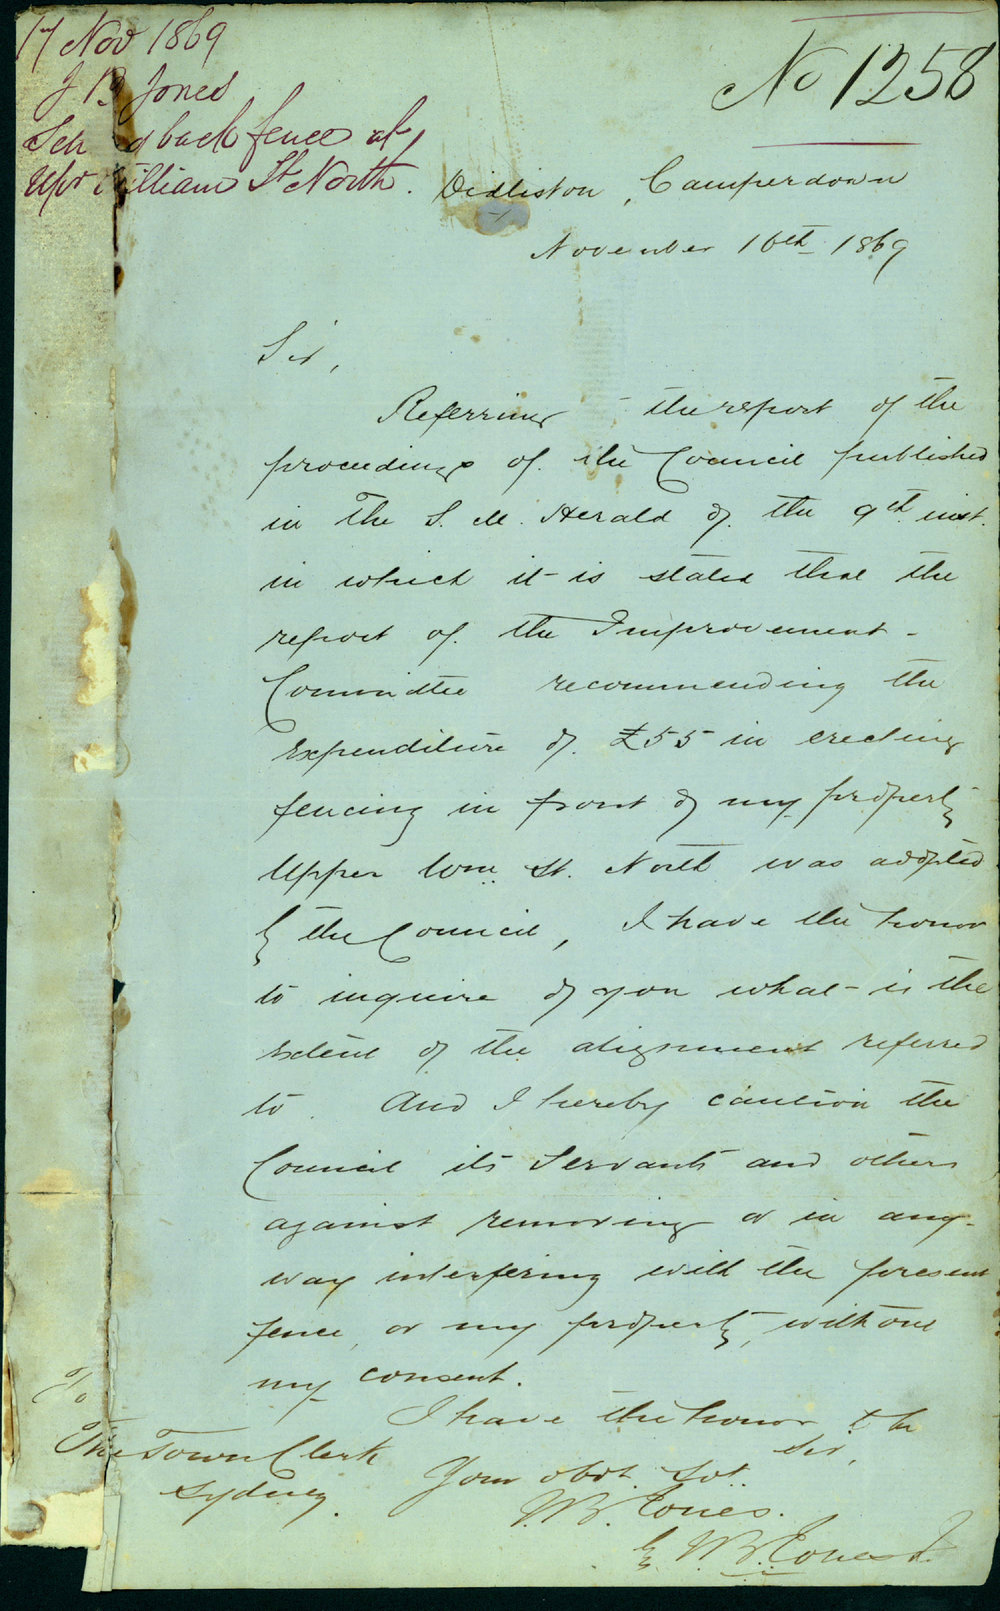 17 Nov 1869
J B Jones
Set back fence at
Upr William St North.
No 1258
Camperdown
November 16th 1869
Sir,
Referring the report of the
proceedings of the Council published
in The S. M. Herald of the 9th inst.
in which it is stated that the
report of the Improvement
Committee recommending the
expenditure of £55 in erecting
fencing in front of my property
Upper Wm. St. North was adopted
by the Council, I have the honor
to inquire of you what is the
extent of the alignment referred
to. And I hereby caution the
Council its Servants and others
against removing or in any-
way interfering with the present
fence, or my property, without
my consent.
I have the honor to be
Sir,
Your obdt. Svt.
W. B. Jones.
by W B. Jones Jr.
To
The Town Clerk
Sydney.